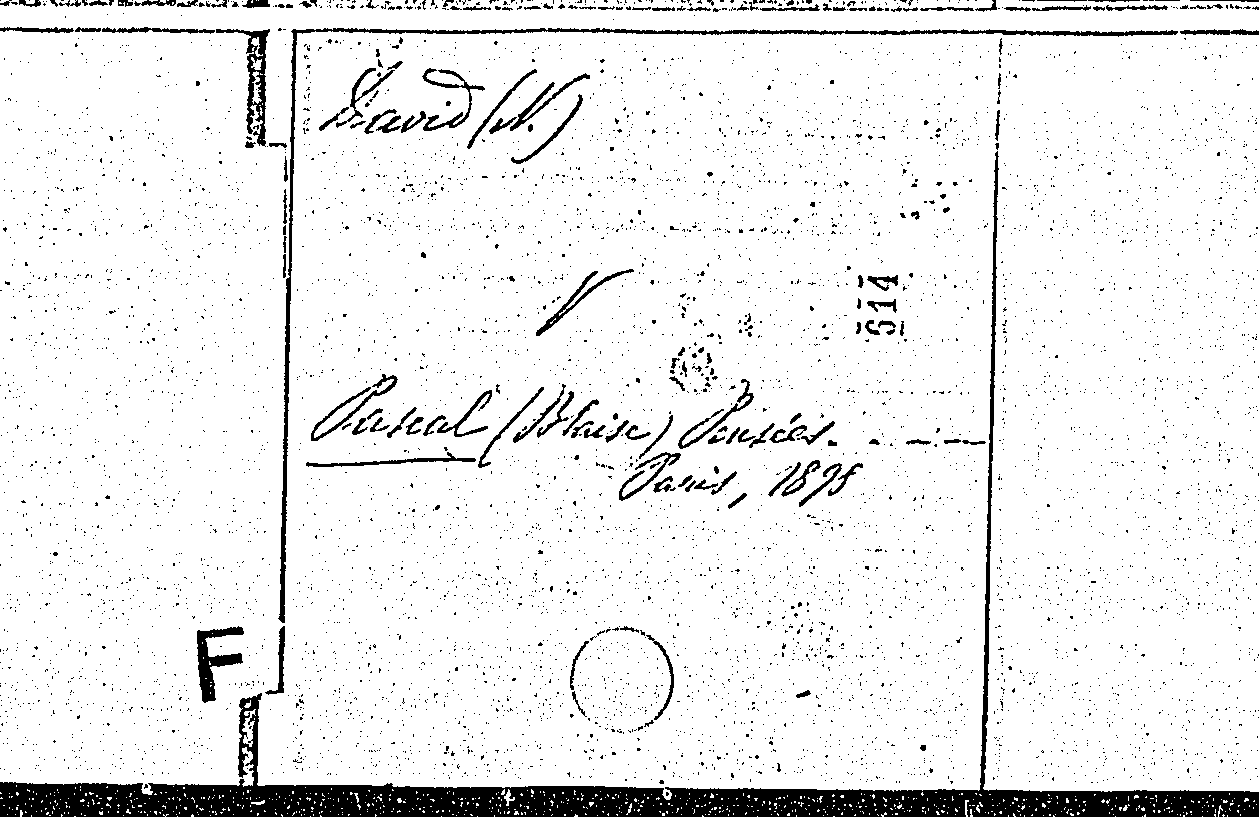 David (N.)
V
514
Pascal (Blaise) Pensées. . _ . _ . _
Paris, 1895
F